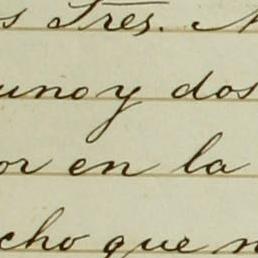 s Tres. N
uno y dos
or en la
cho que n